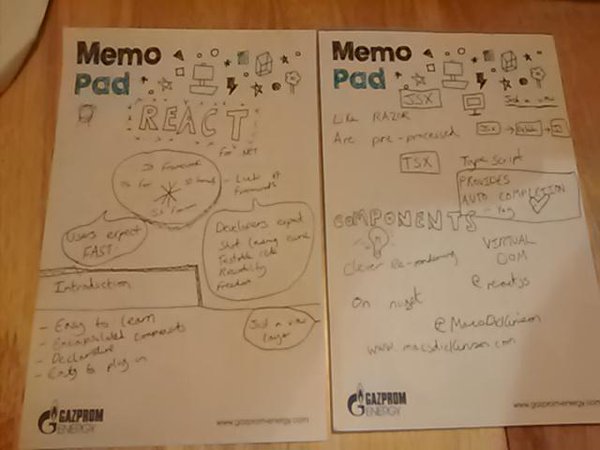 Memo
Pad
REACT
for .NET
JS Framework
- Lack of
frameworks
Users expect
FAST
Developers expect
Short learning curve
Testable code
Reusability
Freedom
Introduction
- Easy to learn
- Encapsulated components
- Declarative
- Easy to plug in
Just a view
layer
GAZPROM
ENERGY
www.gazprom-energy.com
Memo
Pad
JSX
Just a view
Like RAZOR
Are pre-processed
JSX
JS
TSX
TypeScript
PROVIDES
AUTO COMPLETION
- Yay
COMPONENTS
Clever Re-rendering
VIRTUAL
DOM
@reactjs
On nuget
@MacsDickinson
www.macsdickinson.com
GAZPROM
ENERGY
www.gazprom-energy.com